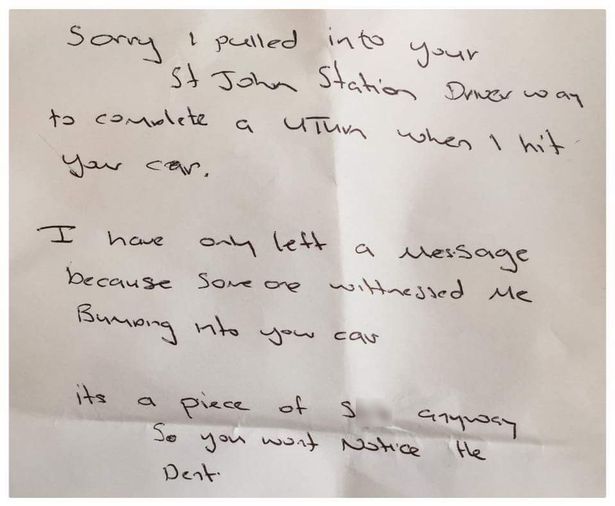 Sorry I pulled into your
St John Station Driverway
to complete a UTurn when I hit
your car.
I have only left a Message
because Some one wittnessed Me
Bumping into your car
its a piece of S anyway
So you wont Notice the
Dent.